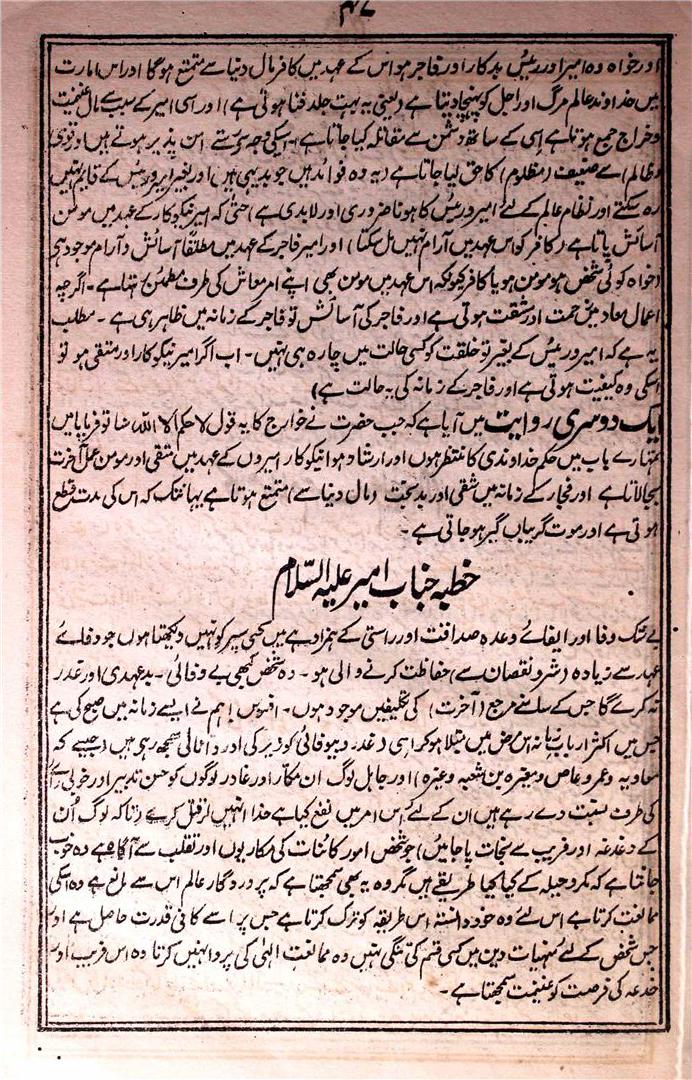 ۴۷
اور خواہ وہ امیر اور رئیس بدکار اور فاجر ہو اس کے عہد میں کافر مال دنیا سے متمتع ہوگا اور اس امارت
میں خداوند عالم مرگ اور اجل کو پہنچا دیتا ہے (یعنی یہ بہت جلد فنا ہوتی ہے) اور اسی امیر کے سبب سے مال غنیمت
و خراج جمع ہوتا ہے اسی کے ساتھ دشمن سے مقاتلہ کیا جاتا ہے۔ اسکی وجہ سے رستے امن پذیر ہوتے ہیں اور قوی
(ظالم) سے ضعیف (مظلوم) کا حق لیا جاتا ہے (یہ وہ فوائد ہیں جو بدیہی ہیں اور بغیر امیر و رئیس کے قایم نہیں
رہ سکتے اور نظام عالم کے لئے امیر و رئیس کا ہونا ضروری اور لابدی ہے) حتیٰ کہ امیر نیکوکار کے عہد میں مومن
آسائش پاتا ہے (کافر کو اس عہد میں آرام نہیں مل سکتا) اور امیر فاجر کے عہد میں مطلقاً آسائش و آرام موجود ہی
(خواہ کوئی شخص ہو مومن ہو یا کافر کیونکہ اس عہد میں مومن بھی اپنے امر معاش کی طرف مطمئن رہتا ہے۔ اگرچہ
اعمال معاد میں زحمت اور مشقت ہوتی ہے اور فاجر کی آسائش تو فاجر کے زمانہ میں ظاہر ہی ہے۔ مطلب
یہ ہے کہ امیر و رئیس کے بغیر تو خلقت کو کسی حالت میں چارہ ہی نہیں۔ اب اگر امیر نیکوکار اور متقی ہو تو
اسکی وہ کیفیت ہوتی ہے اور فاجر کے زمانہ کی یہ حالت ہے)
ایک دوسری روایت میں آیا ہے کہ جب حضرت نے خوارج کا یہ قول لا حکم الا اللہ سنا تو فرمایا میں
تمہارے باب میں حکم خداوندی کا منتظر ہوں اور ارشاد ہوا نیکوکار امیروں کے عہد میں متقی اور مومن عمل آخرت
بجا لاتا ہے اور فجار کے زمانہ میں شقی اور بدبخت (مال دنیا سے) متمتع ہوتا ہے یہانتک کہ اس کی مدت قطع
ہوتی ہے اور موت گریباں گیر ہو جاتی ہے۔
خطبہ جناب امیر علیہ السّلام
بے شک وفا اور ایفائے وعدہ صداقت اور راستی کے ہمزاد ہے میں کسی سپر کو نہیں دیکھتا ہوں جو وفائے
عہد سے زیادہ (شر و نقصان سے) حفاظت کرنے والی ہو۔ وہ شخص کبھی بے وفائی۔ بدعہدی اور غدر
نہ کرے گا جس کے سامنے مرجع (آخرت) کی تکلیفیں موجود ہوں۔ افسوس! ہم نے ایسے زمانہ میں صبح کی ہے
جس میں اکثر ارباب زمانہ اس مرض میں مبتلا ہو کر اسی غدر و بیوفائی کو زیرکی اور دانائی سمجھ رہی ہیں (جیسے کہ
معاویہ و عمرو عاص و مغیرہ بن شعبہ وغیرہ) اور جاہل لوگ ان مکار اور غادر لوگوں کو حسن تدبیر اور خوبی رائے
کی طرف نسبت دے رہے ہیں ان کے لئے اس امر میں نفع کیا ہے خدا انہیں قتل کرے (تاکہ لوگ اُن
کے دغدغہ اور فریب سے نجات پا جائیں) جو شخص امور کائنات کی مکاریوں اور تقلب سے آگاہ ہے وہ خوب
جانتا ہے کہ مکر و حیلہ کے کیا کیا طریقے ہیں مگر وہ یہ بھی سمجھتا ہے کہ پروردگار عالم اس سے مانع ہے وہ اسکی
ممانعت کرتا ہے اس لئے وہ خود دانستہ اس طریقہ کو ترک کرتا ہے جس پر اسے کافی قدرت حاصل ہے اور
جس شخص کے لئے منہیات دین میں کسی قسم کی تنگی نہیں وہ ممانعت الٰہی کی پروا نہیں کرتا وہ اس فریب اور
خدعہ کی فرصت کو غنیمت سمجھتا ہے۔